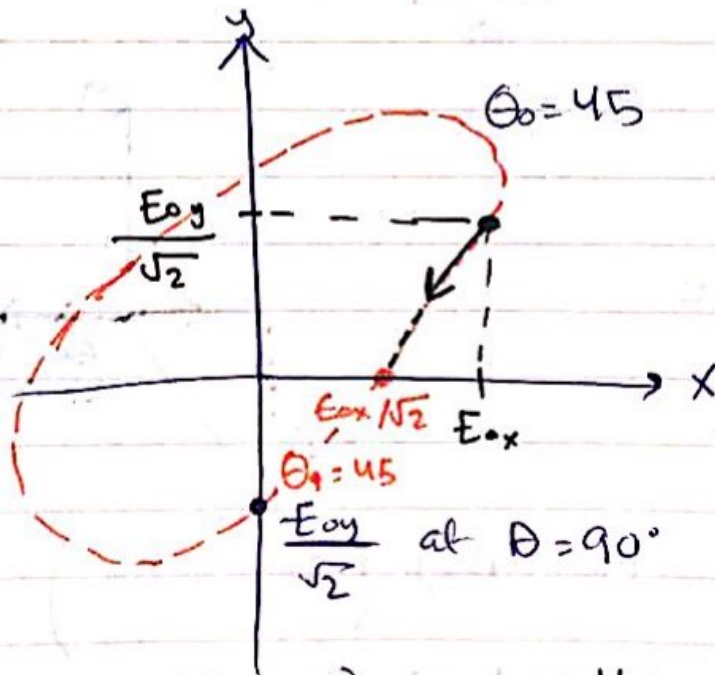 y
θ₀ = 45
E₀y/√2
X
E₀x/√2
E₀x
θ₁ = 45
E₀y/√2 at θ = 90°